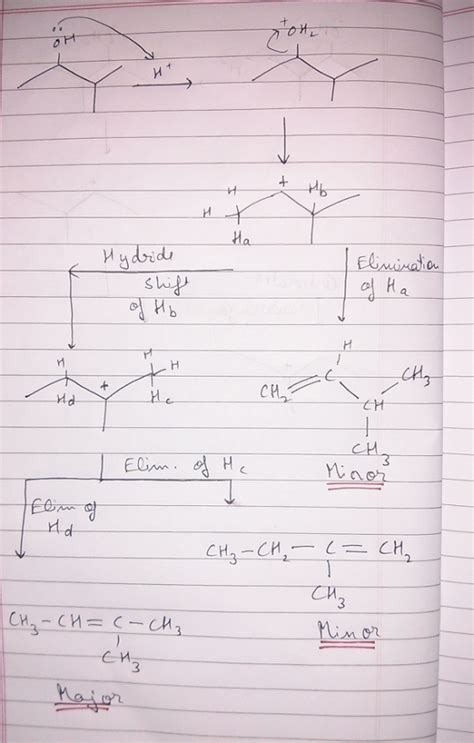 ÖH
H⁺
⁺OH₂
H + Hb
H
Ha
Hydride
shift
of Hb
Elimination
of Ha
H H
H
+
Hd Hc
H
CH₂ = C CH₃
CH
CH₃
Minor
Elim. of Hc
Elim of
Hd
CH₃-CH₂-C=CH₂
CH₃
Minor
CH₃-CH=C-CH₃
CH₃
Major